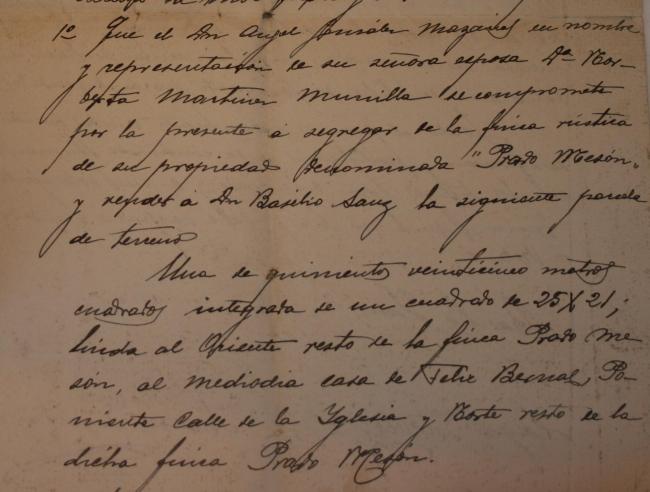 1º Que el Dn Angel González Mazarios en nombre
y representación de su señora esposa Dª Nor-
berta Martinez Munilla se compromete
por la presente á segregar de la finca rústica
de su propiedad denominada "Prado Mesón"
y vender á Dn Basilio Sanz la siguiente parcela
de terreno
Una de quinientos veinticinco metros
cuadrados integrada de un cuadrado de 25X21;
linda al Oriente resto de la finca Prado Me
són, al mediodia casa de Felix Bernal, Po-
niente Calle de la Yglesia y Norte resto de la
dicha finca Prado Mesón.